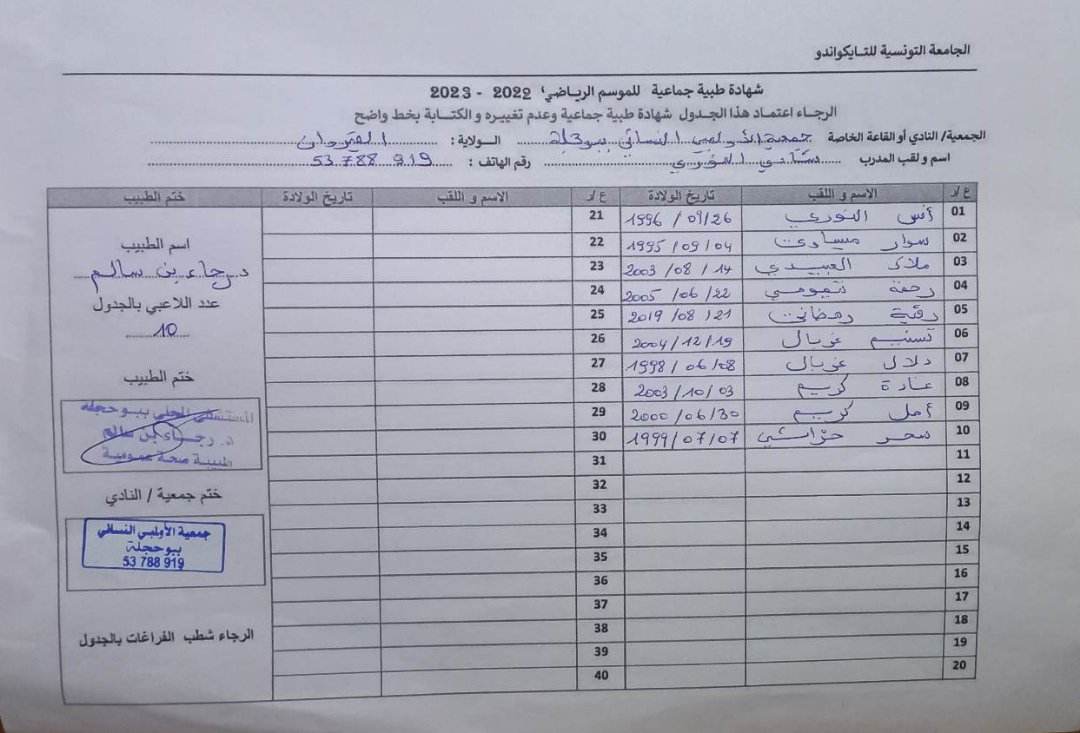 الجامعة التونسية للتايكواندو
شهادة طبية جماعية للموسم الرياضي 2022 - 2023
الرجاء اعتماد هذا الجدول شهادة طبية جماعية وعدم تغييره و الكتابة بخط واضح
الجمعية/ النادي أو القاعة الخاصة جمعية الأولمبي النسائي ببوحجلة الولاية: القيروان
اسم و لقب المدرب النوري رقم الهاتف: 53 788 919
ع/ر الاسم و اللقب تاريخ الولادة ع/ر الاسم و اللقب تاريخ الولادة ختم الطبيب
01 أنس النوري 1996 / 09/26 21
02 سوار ميساوي 1995 / 09 / 04 22
03 ملاك العبيدي 2003 / 08 / 14 23
04 رحمة 2005 / 06 / 22 24
05 رقية رمضاني 2019 / 08 / 21 25
06 تسنيم غربال 2004 / 12 / 19 26
07 دلال غربال 1998 / 06 / 08 27
08 غادة كريم 2003 / 10 / 03 28
09 أمل كريم 2000 / 06 / 30 29
10 سحر 1999 / 07 / 07 30
11 31
12 32
13 33
14 34
15 35
16 36
17 37
18 38
19 39
20 40
اسم الطبيب
د. رجاء بن سالم
عدد اللاعبي بالجدول
10
ختم الطبيب
المستشفى المحلي ببوحجلة
د. رجاء بن سالم
طبيبة صحة عمومية
ختم جمعية / النادي
جمعية الأولمبي النسائي
ببوحجلة
53 788 919
الرجاء شطب الفراغات بالجدول